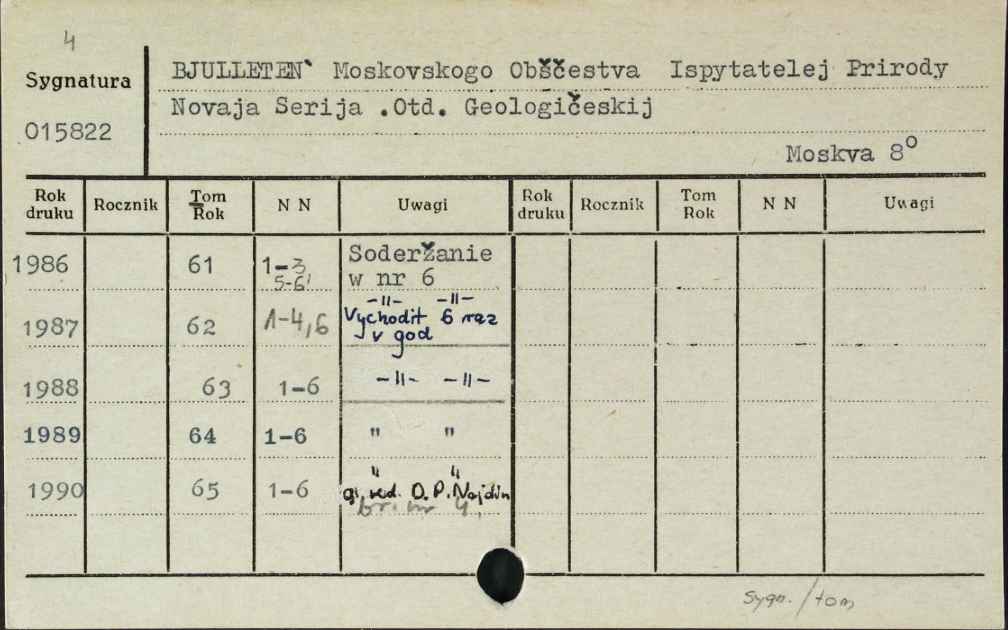 4
Sygnatura
015822
BJULLETEN` Moskovskogo Obščestva Ispytatelej Prirody
Novaja Serija .Otd. Geologičeskij
Moskva 8°
Rok druku Rocznik Tom Rok N N Uwagi Rok druku Rocznik Tom Rok N N Uwagi
1986 61 1-3 Soderžanie
5-6 w nr 6
-"- -"-
1987 62 1-4,6 Vychodit 6 raz
v god
1988 63 1-6 -"- -"-
1989 64 1-6 " "
" "
1990 65 1-6 gł. red. D. P. Najdin
br. nr 4,
Sygn. / tom